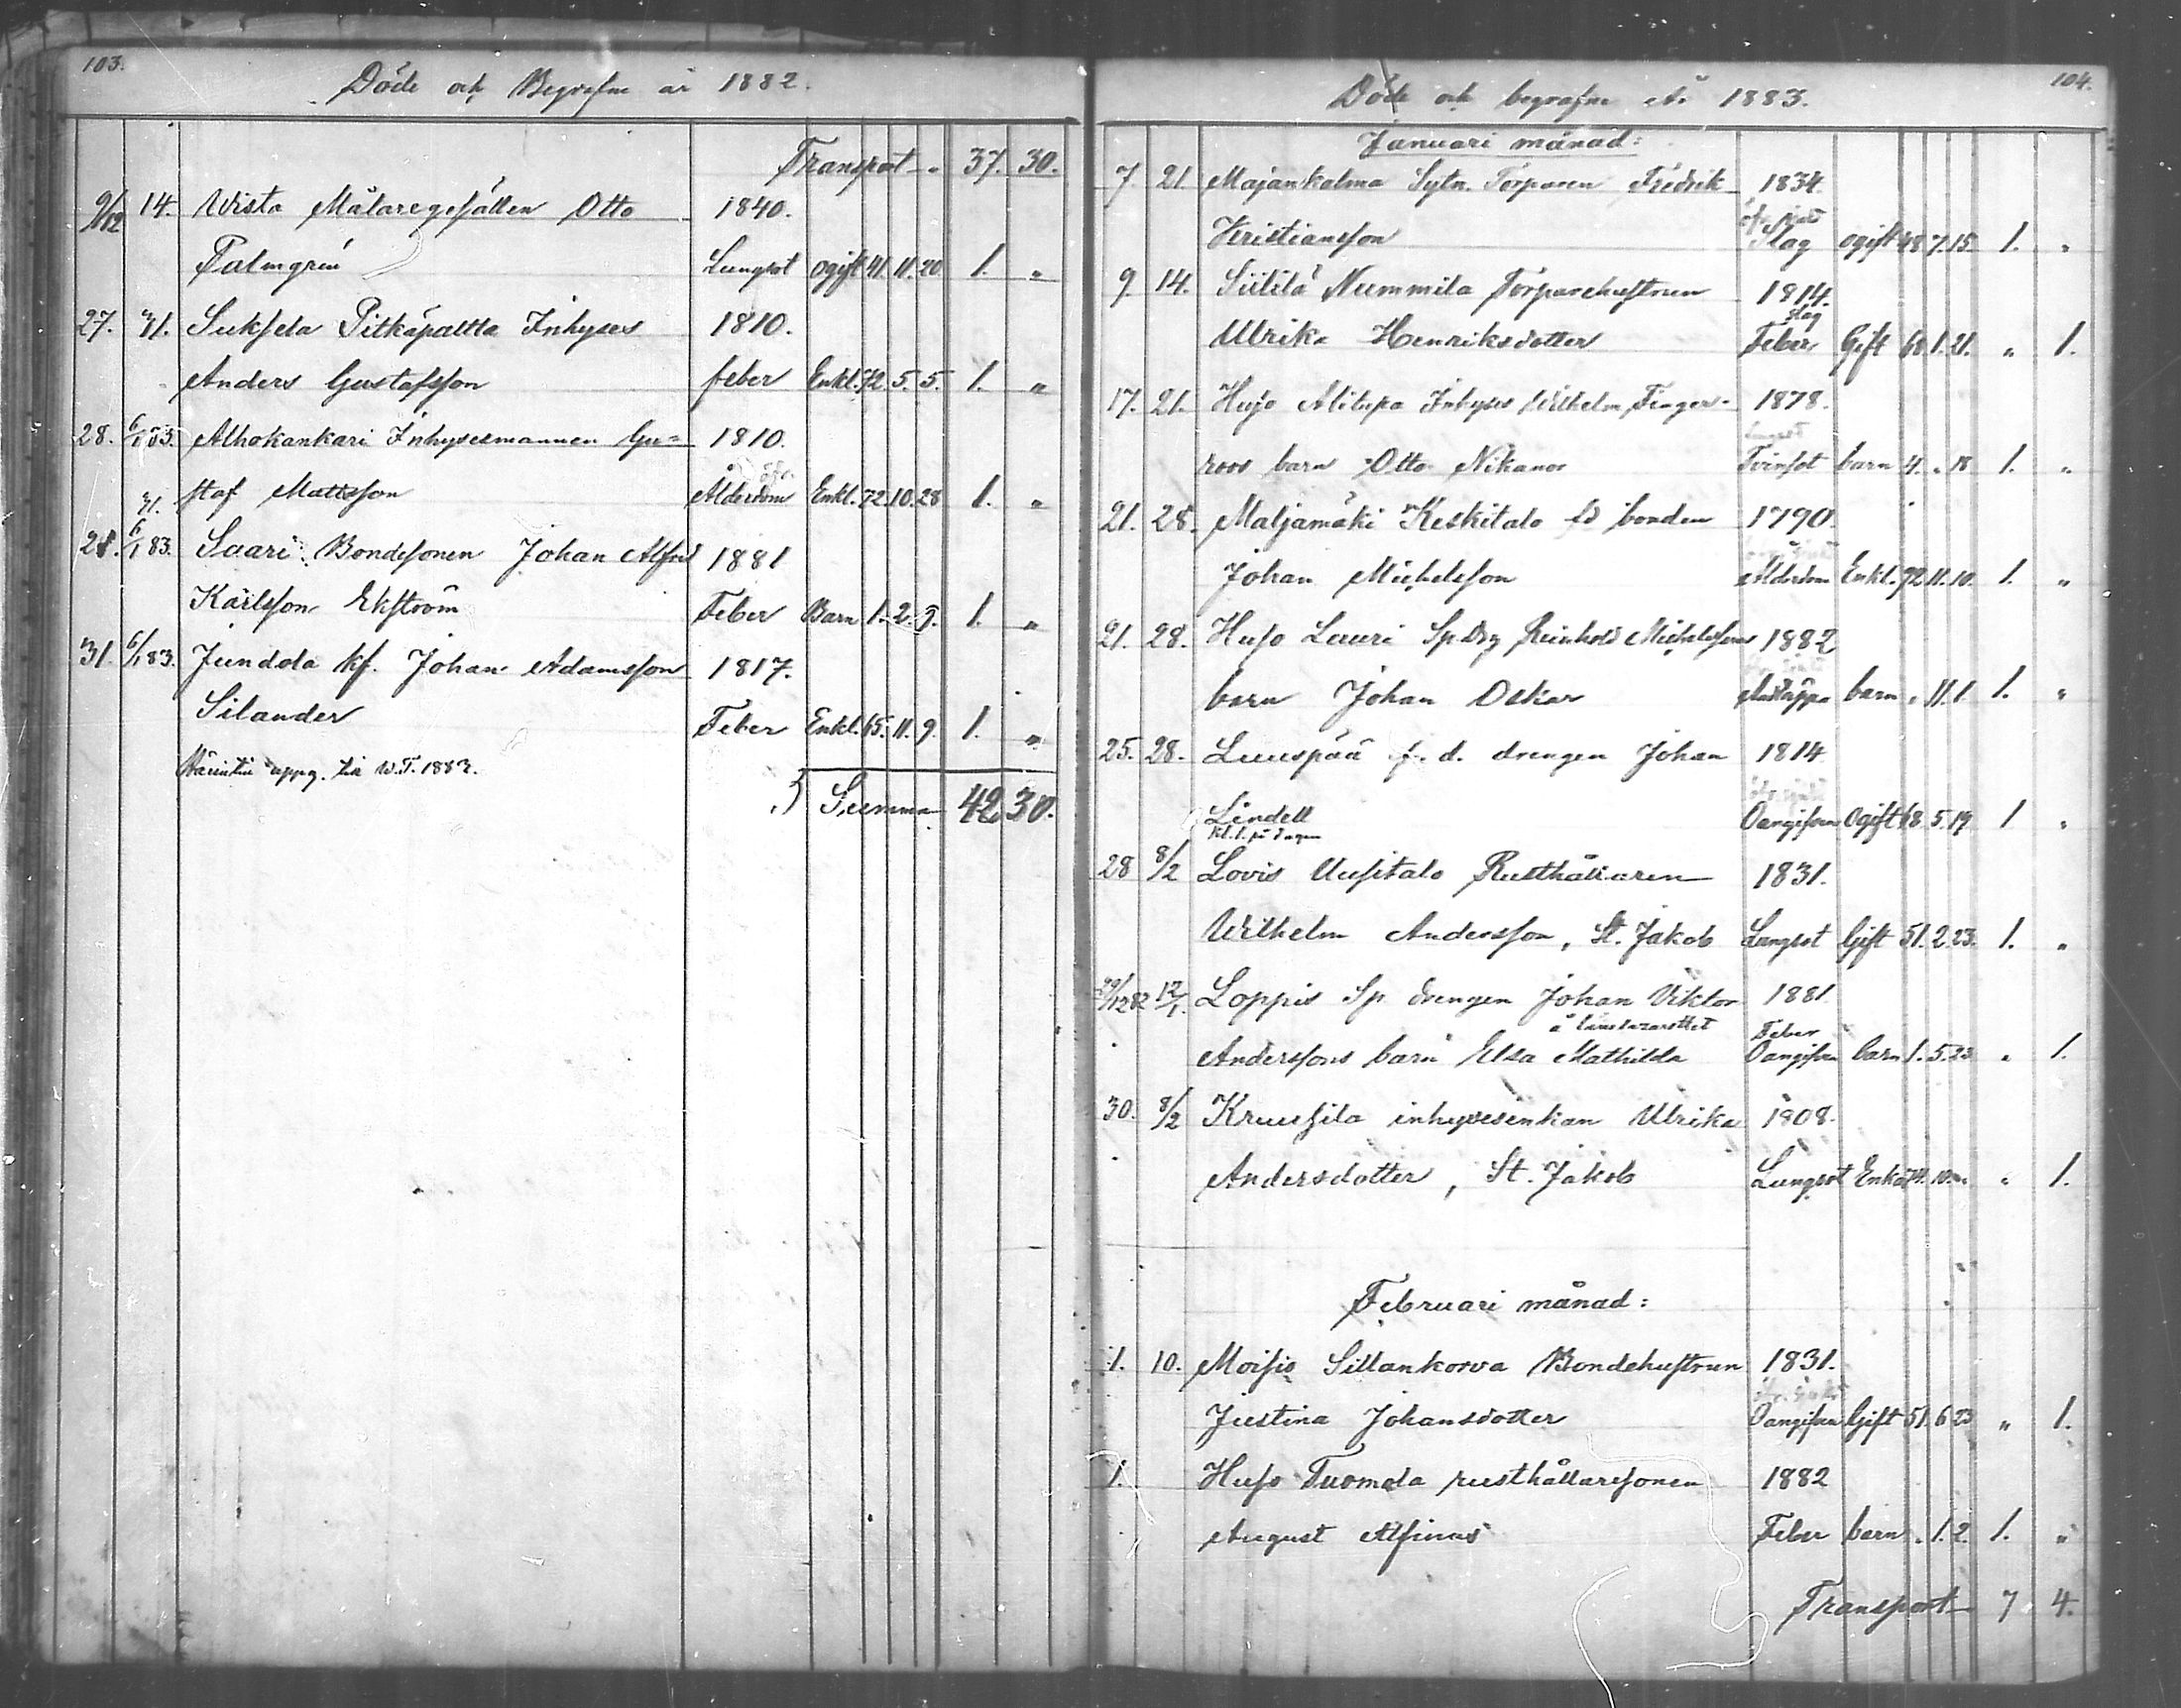 103.
Döde och Begrafne år 1882.
Transport 37. 30.
9/12 14. Wista Målaregesällen Otto 1840.
Palmgrén Lungsot ogift 41. 11. 20. 1. "
27. 7/1. Suksela Pitkäpaltta Inhyses 1810.
Anders Gustafsson feber Enkl. 72. 5. 5. 1. "
28. 6/1 83. Alhokankari Inhysesmannen Gu=
1810.
7/1. staf Mattsson Ålderdom Enkl. 72. 10. 28 1. "
28. 6/1 83. Saari Bondesonen Johan Alfred 1881
Karlsson Ekström Feber Barn 1. 2. 9. 1. "
31. 6/1 83. Jundola kf. Johan Adamsson 1817.
Silander Feber Enkl. 65. 11. 9. 1. "
uppg. till W.T. 1883.
Summa 42. 30.
104.
Döde och begrafne År 1883.
Januari månad:
7. 21 Majankalma Sytn. Torparen Fredrik 1834.
Kristiansson Slag ogift 48. 7. 15. 1. "
9. 14. Siitilä Nummila Torparehustrun 1814.
Slag
Ulrika Henriksdotter Feber Gift 68. 1. 21. " 1.
17. 21. Hujo Alitupa Inhyses Wilhelm Finger- 1878.
roos barn Otto Nikanor Tvinsot barn 4. " 18 1. "
21. 28. Maljamäki Keskitalo fd bonden 1790.
Johan Michelsson Ålderdom Enkl. 92. 11. 10. 1. "
21. 28. Hujo Lauri Sp. Drg Reinhold Michelssons 1882
barn Johan Oskar barn " 11. 1. 1. "
25. 28. Luuspää f. d. drengen Johan 1814
Lindell Oangifven Ogift 68. 5. 19 1 "
Kl. 1. på dagen
28 8/2 Lovis Uusitalo Rusthållaren 1831.
Wilhelm Andersson, St. Jakob Lungsot Gift 51. 2. 23. 1. "
29/12 82 12/1. Loppis Sp. drengen Johan Viktor 1881.
å länslazarettet Feber
Anderssons barn Elsa Mathilda Oangifven barn 1. 5. 23 " 1.
30. 8/2 Kruusila inhysesenkan Ulrika 1808.
Andersdotter, St. Jakob Lungsot Enka 74. 10. " 1.
Februari månad:
1. 10. Moisio Sillankorva Bondehustrun 1831.
Justina Johansdotter Oangifven Gift 51. 6. 23 " 1.
1. Hujo Tuomola rusthållaresonen 1882
August Alfinus Feber barn " 1. 2. 1. "
Transport 7 4.